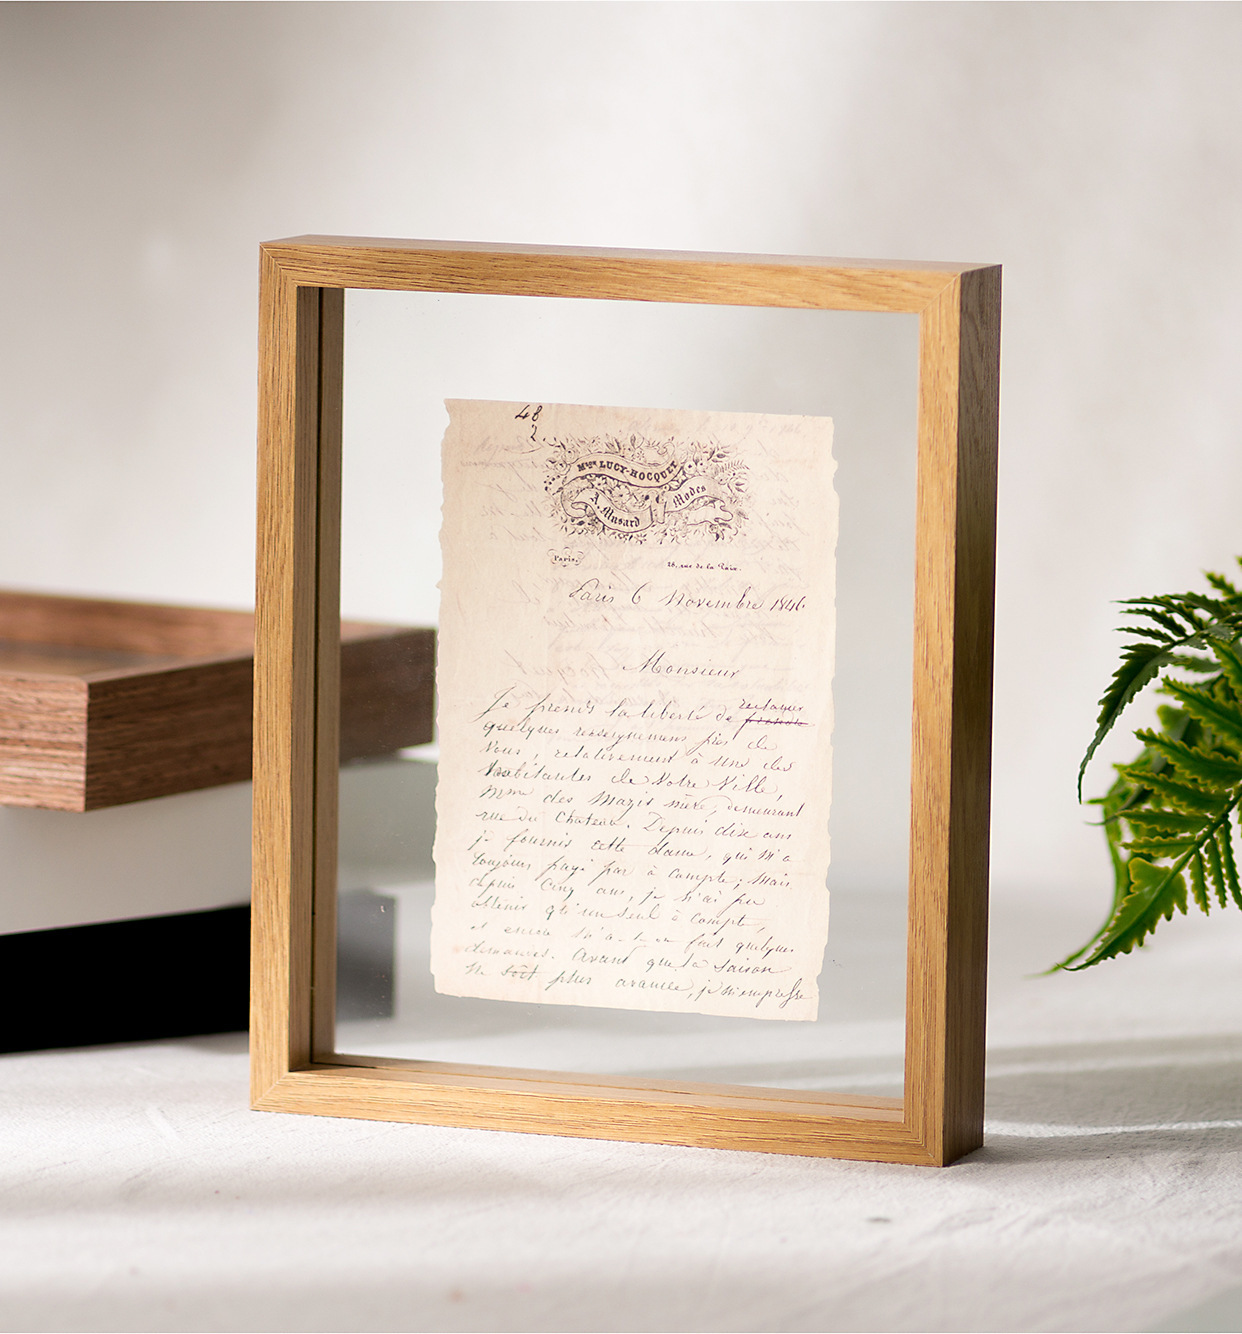 48
2
Mme LUCY-HOCQUET
A. Musard Modes
Paris.
28, rue de la Paix.
Paris 6 Novembre 1846
Monsieur
réclamer
Je prends la liberté de
quelques renseignemens près de
Vous, relativement à une des
habitantes de Votre Ville,
Mme des Mazis mère, demeurant
rue du Chateau. Depuis dix ans
je fournis cette dame, qui m'a
toujours payé par à compte; Mais
depuis cinq ans, je n'ai pu
obtenir qu'un seul à compte,
et encore m'a-t-on fait quelques
demandes. Avant que la saison
ne soit plus avancée, je m'empresse